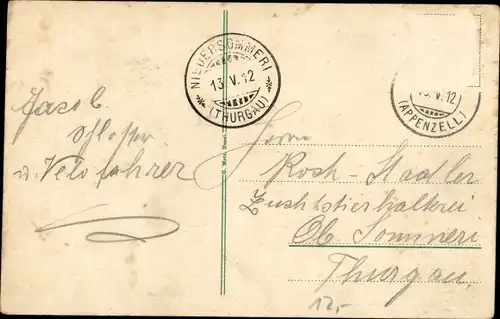 NIEDERSOMMERI
13.V.12
(THURGAU)
13.V.12
(APPENZELL)
Jacob
u. Velofahrer
Herrn
Koch-Stadler
Zuchtstierhalterei
Ob. Sommeri
Thurgau
12,-